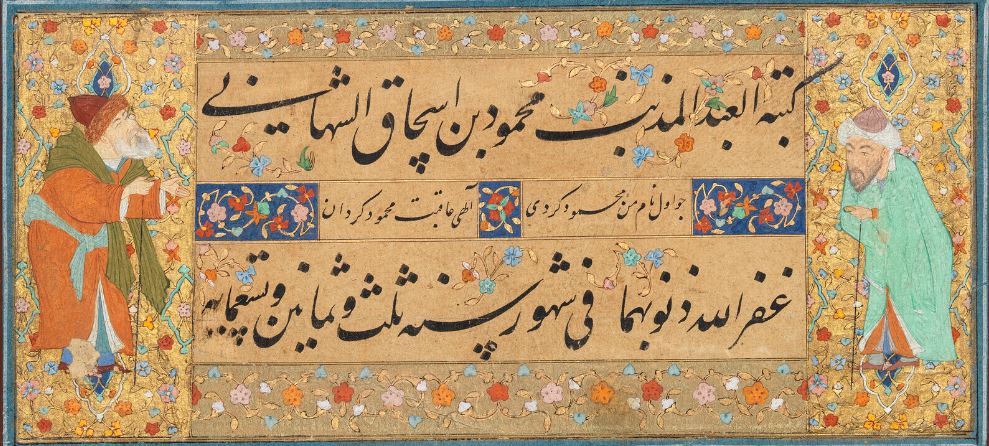 كتبه العبد المذنب محمود بن اسحاق الشهابی
چو اول نام من محمود کردی الهی عاقبت محمود کردان
غفر الله ذنوبهما فی شهور سنه ثلث و ثمانین و تسعمایه